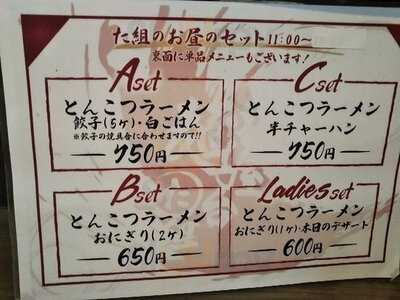 た組のお昼のセット11:00〜
裏面に単品メニューもございます!
Aset
とんこつラーメン
餃子(5ヶ)・白ごはん
※餃子の焼具合に合わせますので!!
750円
Cset
とんこつラーメン
半チャーハン
750円
Bset
とんこつラーメン
おにぎり(2ヶ)
650円
Ladies set
とんこつラーメン
おにぎり(1ヶ)・本日のデザート
600円